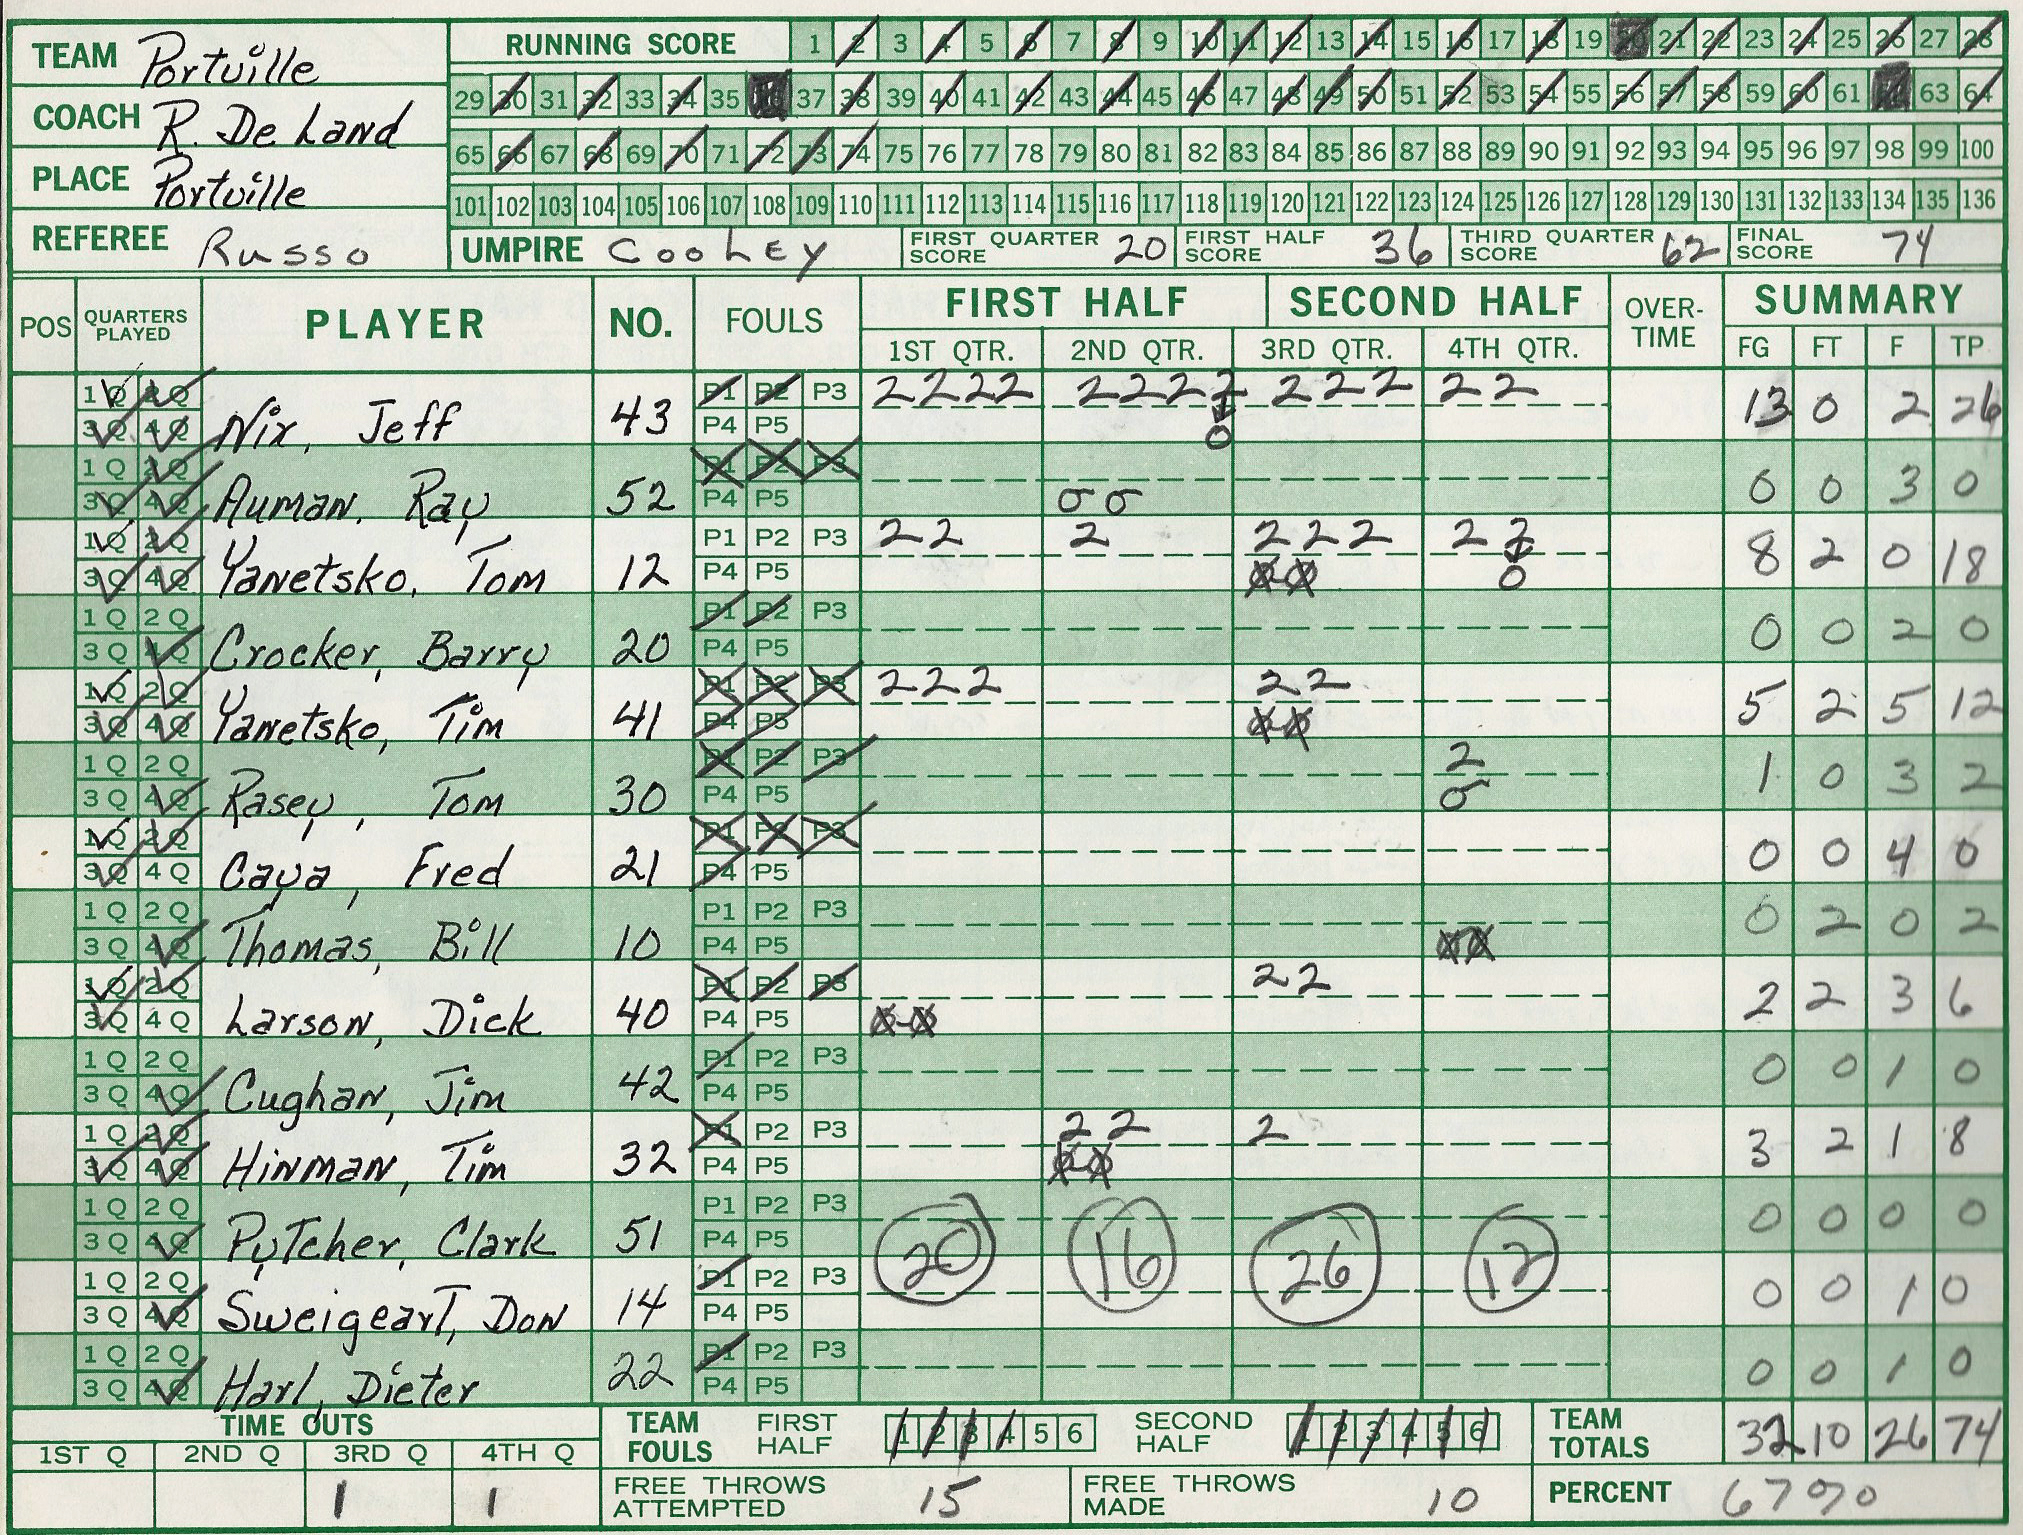 TEAM Portville
COACH R. De Land
PLACE Portville
REFEREE Russo
RUNNING SCORE 1 2 3 4 5 6 7 8 9 10 11 12 13 14 15 16 17 18 19 20 21 22 23 24 25 26 27 28
29 30 31 32 33 34 35 36 37 38 39 40 41 42 43 44 45 46 47 48 49 50 51 52 53 54 55 56 57 58 59 60 61 62 63 64
65 66 67 68 69 70 71 72 73 74 75 76 77 78 79 80 81 82 83 84 85 86 87 88 89 90 91 92 93 94 95 96 97 98 99 100
101 102 103 104 105 106 107 108 109 110 111 112 113 114 115 116 117 118 119 120 121 122 123 124 125 126 127 128 129 130 131 132 133 134 135 136
UMPIRE Cooley FIRST QUARTER SCORE 20 FIRST HALF SCORE 36 THIRD QUARTER SCORE 62 FINAL SCORE 74
POS QUARTERS PLAYED PLAYER NO. FOULS FIRST HALF SECOND HALF OVER-TIME SUMMARY
1ST QTR. 2ND QTR. 3RD QTR. 4TH QTR. FG FT F TP
1 Q 2 Q P1 P2 P3 2 2 2 2 2 2 2 2 2 2 2 2 2
3 Q 4 Q Nix, Jeff 43 P4 P5 0 13 0 2 26
1 Q 2 Q P1 P2 P3
3 Q 4 Q Auman, Ray 52 P4 P5 0 0 0 0 3 0
1 Q 2 Q P1 P2 P3 2 2 2 2 2 2 2 2
3 Q 4 Q Yanetsko, Tom 12 P4 P5 0 0 0 8 2 0 18
1 Q 2 Q P1 P2 P3
3 Q 4 Q Crocker, Barry 20 P4 P5 0 0 2 0
1 Q 2 Q P1 P2 P3 2 2 2 2 2
3 Q 4 Q Yanetsko, Tim 41 P4 P5 0 0 5 2 5 12
1 Q 2 Q P1 P2 P3 2
3 Q 4 Q Rasey, Tom 30 P4 P5 0 1 0 3 2
1 Q 2 Q P1 P2 P3
3 Q 4 Q Caya, Fred 21 P4 P5 0 0 4 0
1 Q 2 Q P1 P2 P3
3 Q 4 Q Thomas, Bill 10 P4 P5 0 0 0 2 0 2
1 Q 2 Q P1 P2 P3 2 2
3 Q 4 Q Larson, Dick 40 P4 P5 0-0 2 2 3 6
1 Q 2 Q P1 P2 P3
3 Q 4 Q Cughan, Jim 42 P4 P5 0 0 1 0
1 Q 2 Q P1 P2 P3 2 2 2
3 Q 4 Q Hinman, Tim 32 P4 P5 0-0 3 2 1 8
1 Q 2 Q P1 P2 P3
3 Q 4 Q Putcher, Clark 51 P4 P5 20 16 26 12 0 0 0 0
1 Q 2 Q P1 P2 P3
3 Q 4 Q Sweigeart, Don 14 P4 P5 0 0 1 0
1 Q 2 Q P1 P2 P3
3 Q 4 Q Harl, Dieter 22 P4 P5 0 0 1 0
TIME OUTS
1ST Q 2ND Q 3RD Q 4TH Q
1 1
TEAM FOULS FIRST HALF 1 2 3 4 5 6 SECOND HALF 1 2 3 4 5 6 TEAM TOTALS 32 10 26 74
FREE THROWS ATTEMPTED 15 FREE THROWS MADE 10 PERCENT 67%